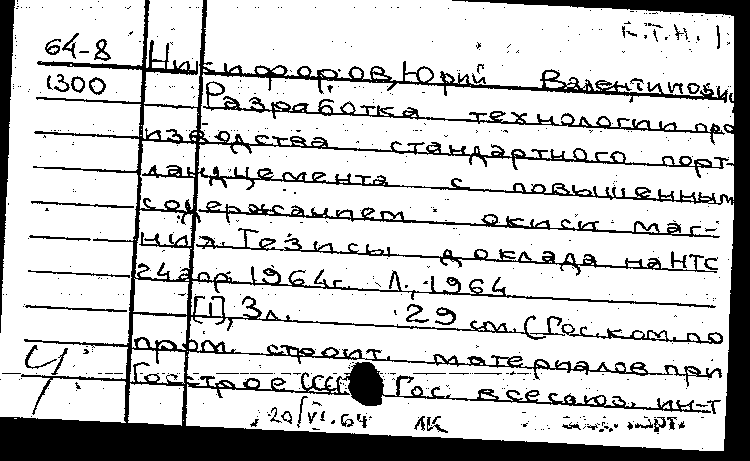 К.Т.Н. 1.
64-8 Никифоров, Юрий Валентинович
1300 Разработка технологии про
изводства стандартного порт-
ландцемента с повышенным
содержанием окиси маг-
ния. Тезисы доклада на НТС
24 апр. 1964г. Л., 1964
[1], 3л. 29 см. (Гос. ком. по
пром. строит. материалов при
Госстрое СССР Гос. всесоюз. ин-т
20/VI.64 ЛК